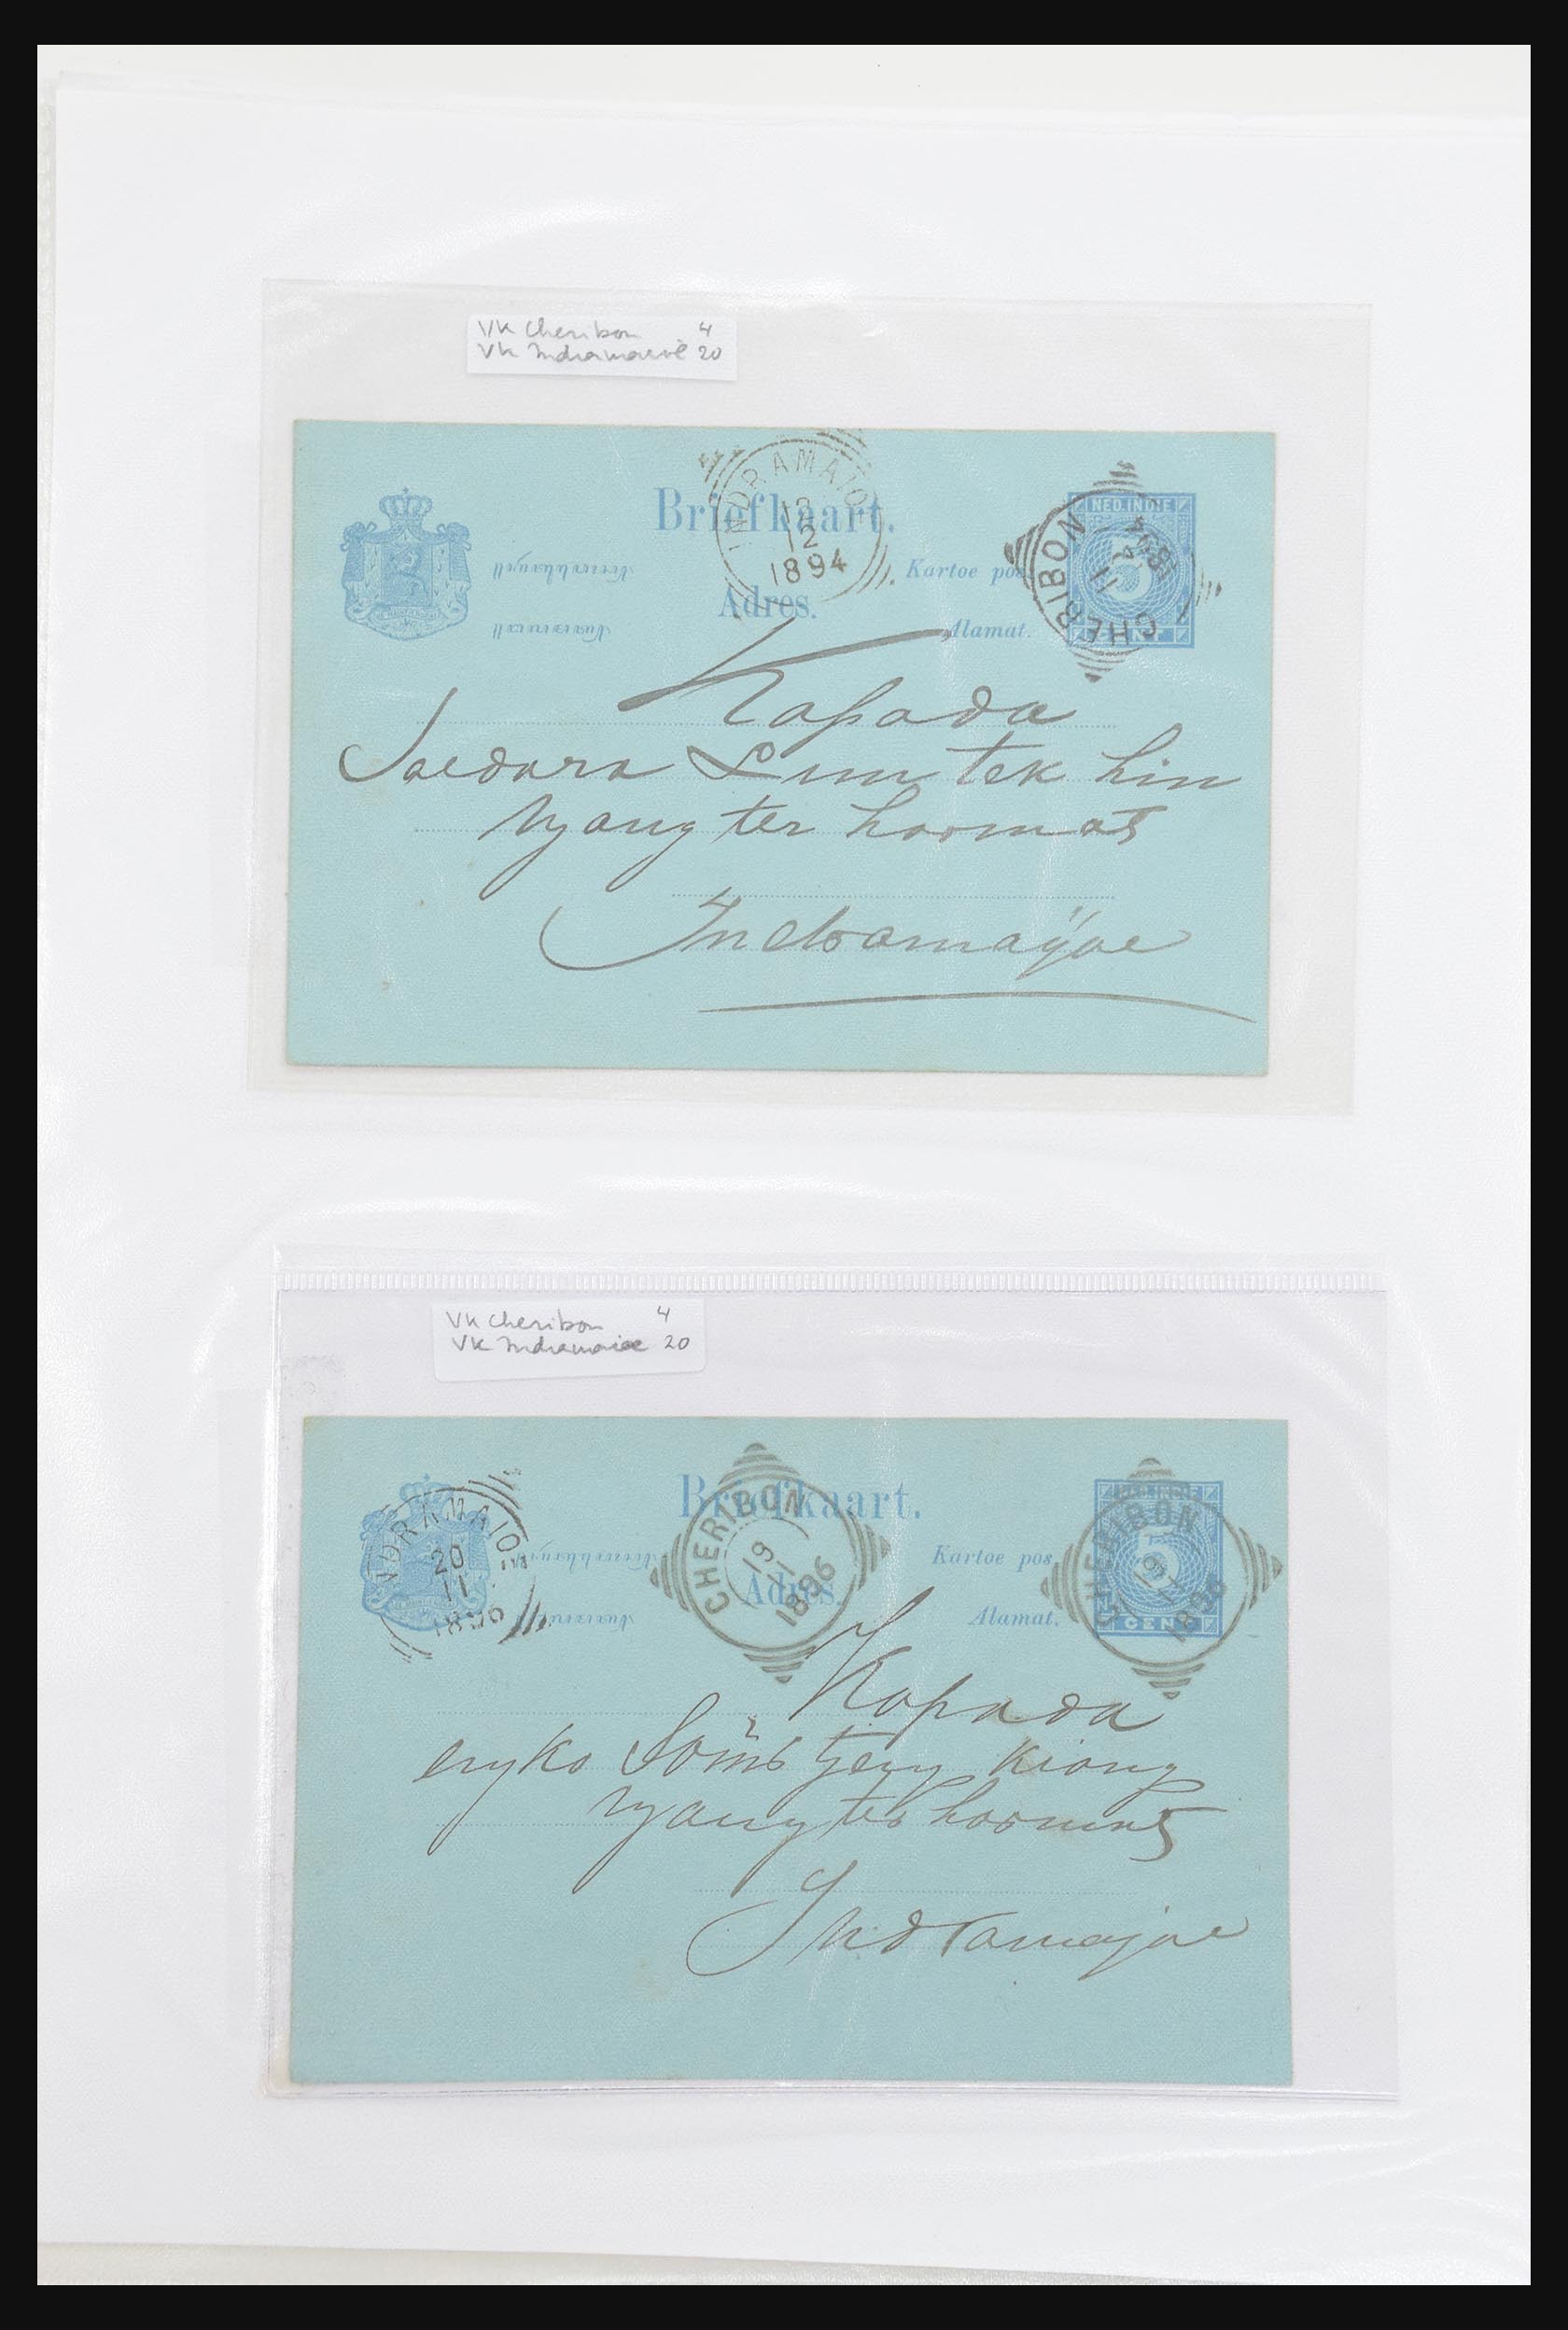 VK Cheribon 4
VK Indramaioe 20
INDRAMAIOE
12
12
1894
Briefkaart.
Adres.
Kartoe pos
Alamat.
NED. INDIE
5
CENT
CHERIBON
11
12
1894
Kapada
Soedara Lim tek hin
njang ter hoormat
Indramajoe
VK Cheribon 4
VK Indramaioe 20
INDRAMAIOE
20
11
1896
Briefkaart.
Adres.
CHERIBON
19
11
1896
Kartoe pos
Alamat.
NED. INDIE
5
CENT
CHERIBON
19
11
1896
Kapada
njang ter hoormat
Indramajoe